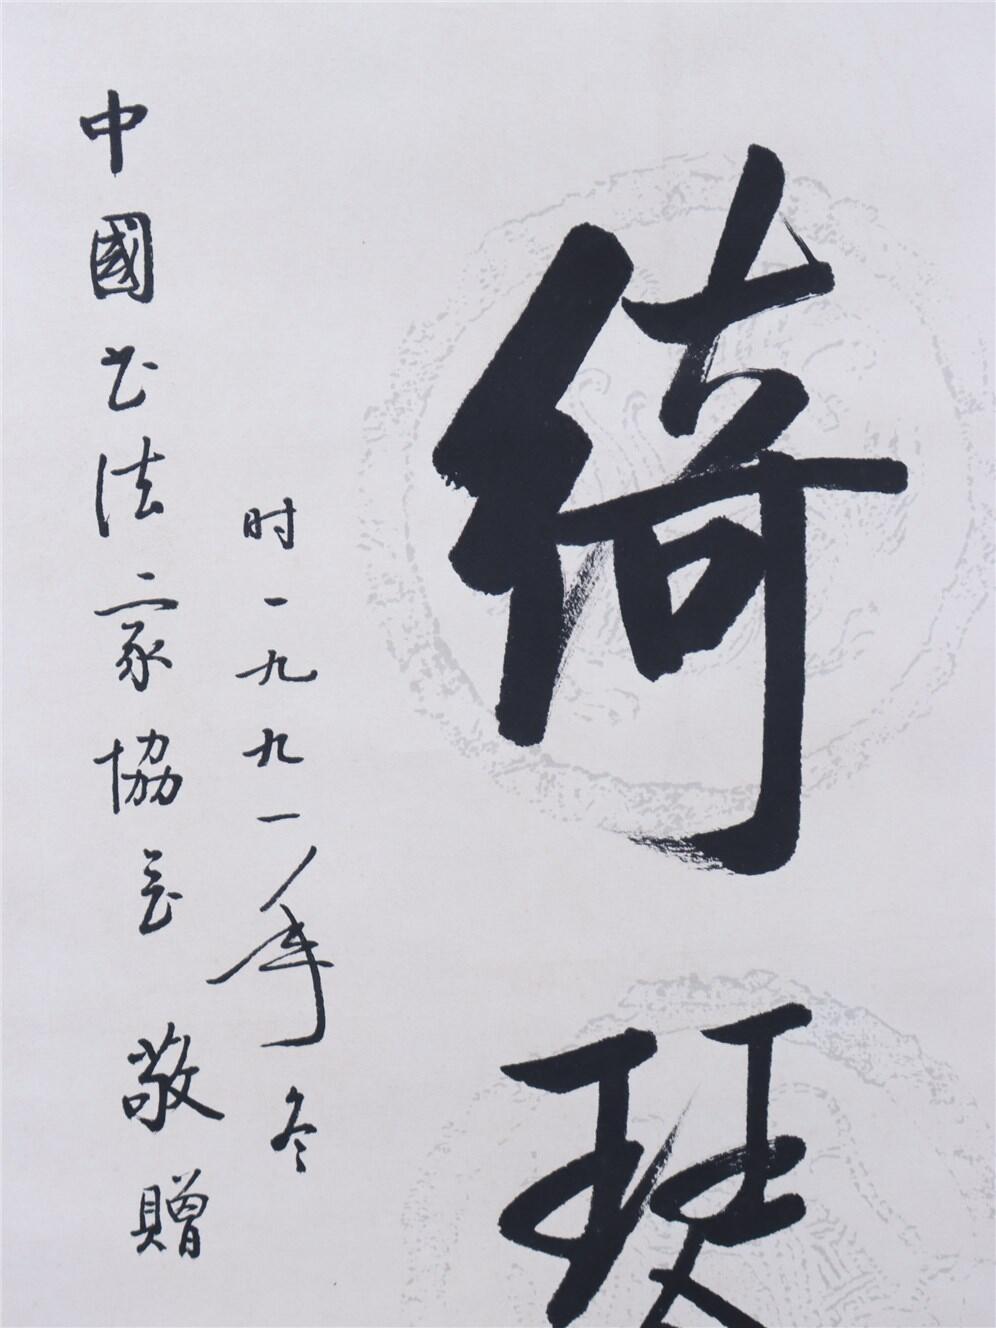 綺琴
时一九九一年冬
中國书法家協会敬贈